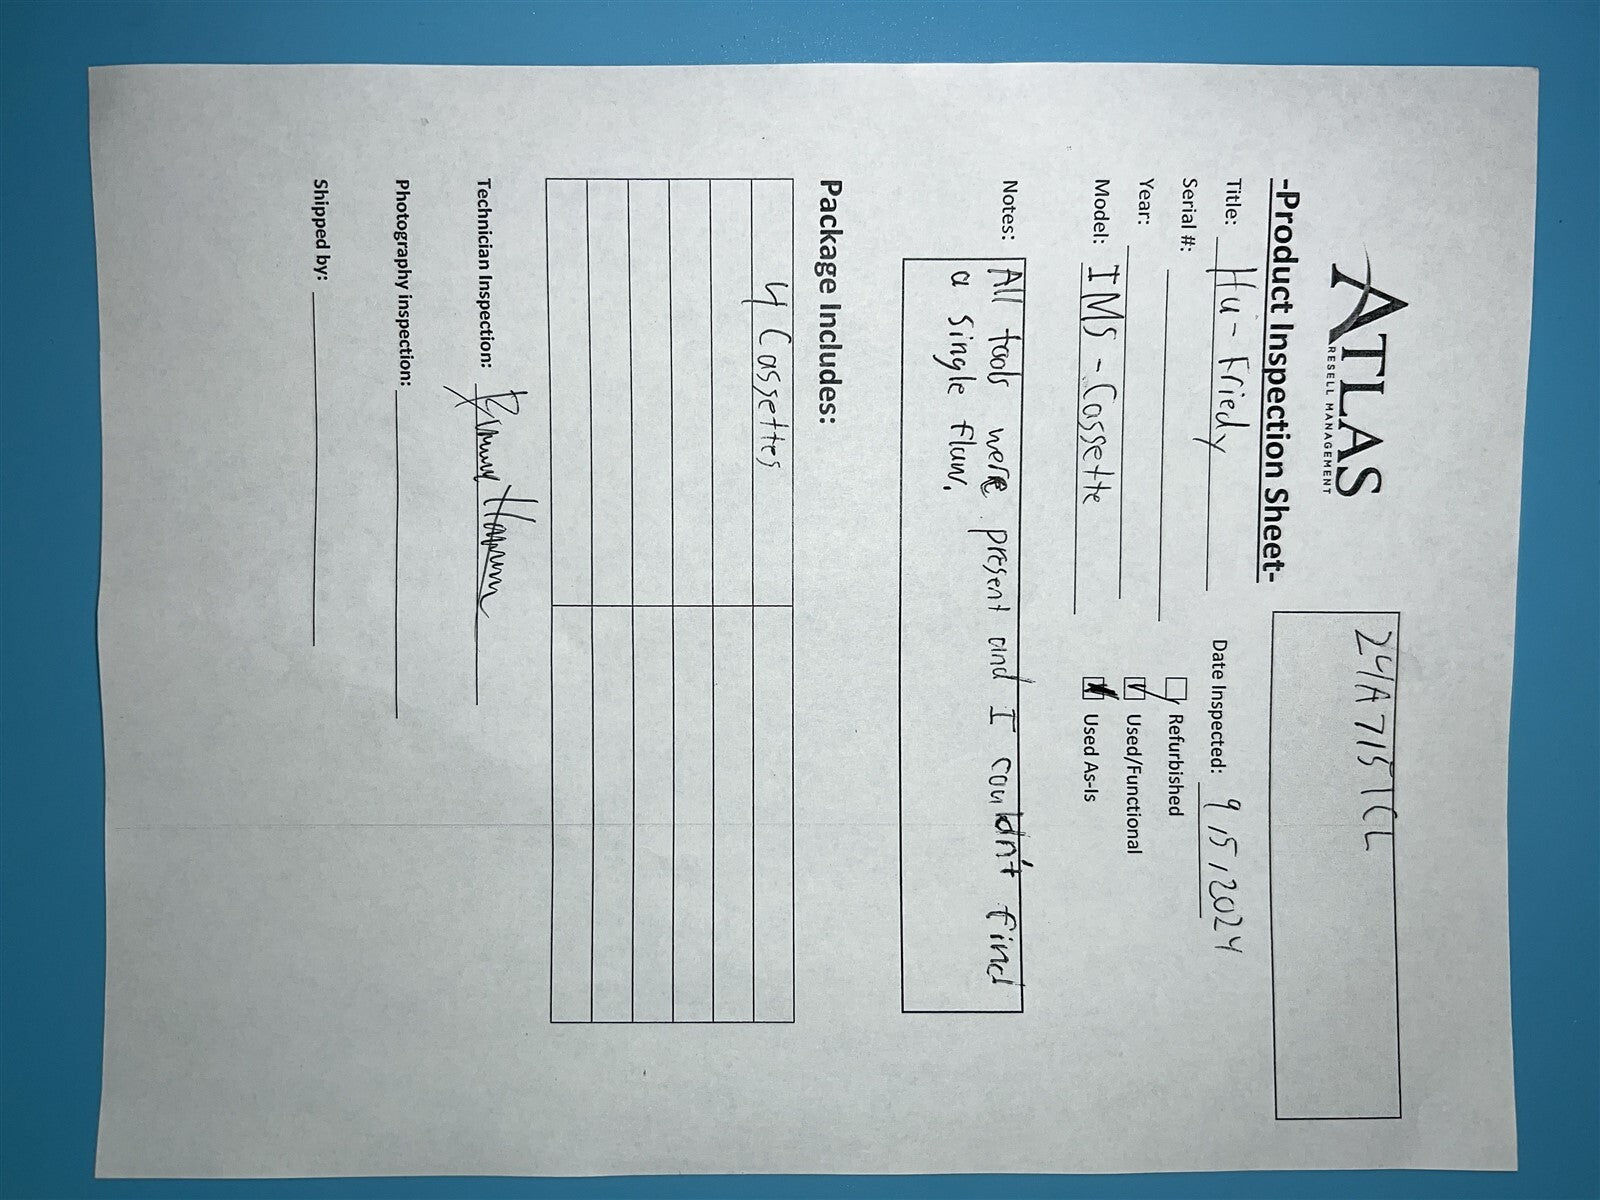 ATLAS
RESELL MANAGEMENT
24A715TCL
-Product Inspection Sheet-
Title: Hu-Friedy
Date Inspected: 9,5,2024
Serial #:
Refurbished
Year:
Used/Functional
Model: IMS-Cassette
Used As-Is
Notes: All tools were present and I couldn't find
a single flaw.
Package Includes:
4 Cassettes
Technician Inspection:
Photography inspection:
Shipped by: